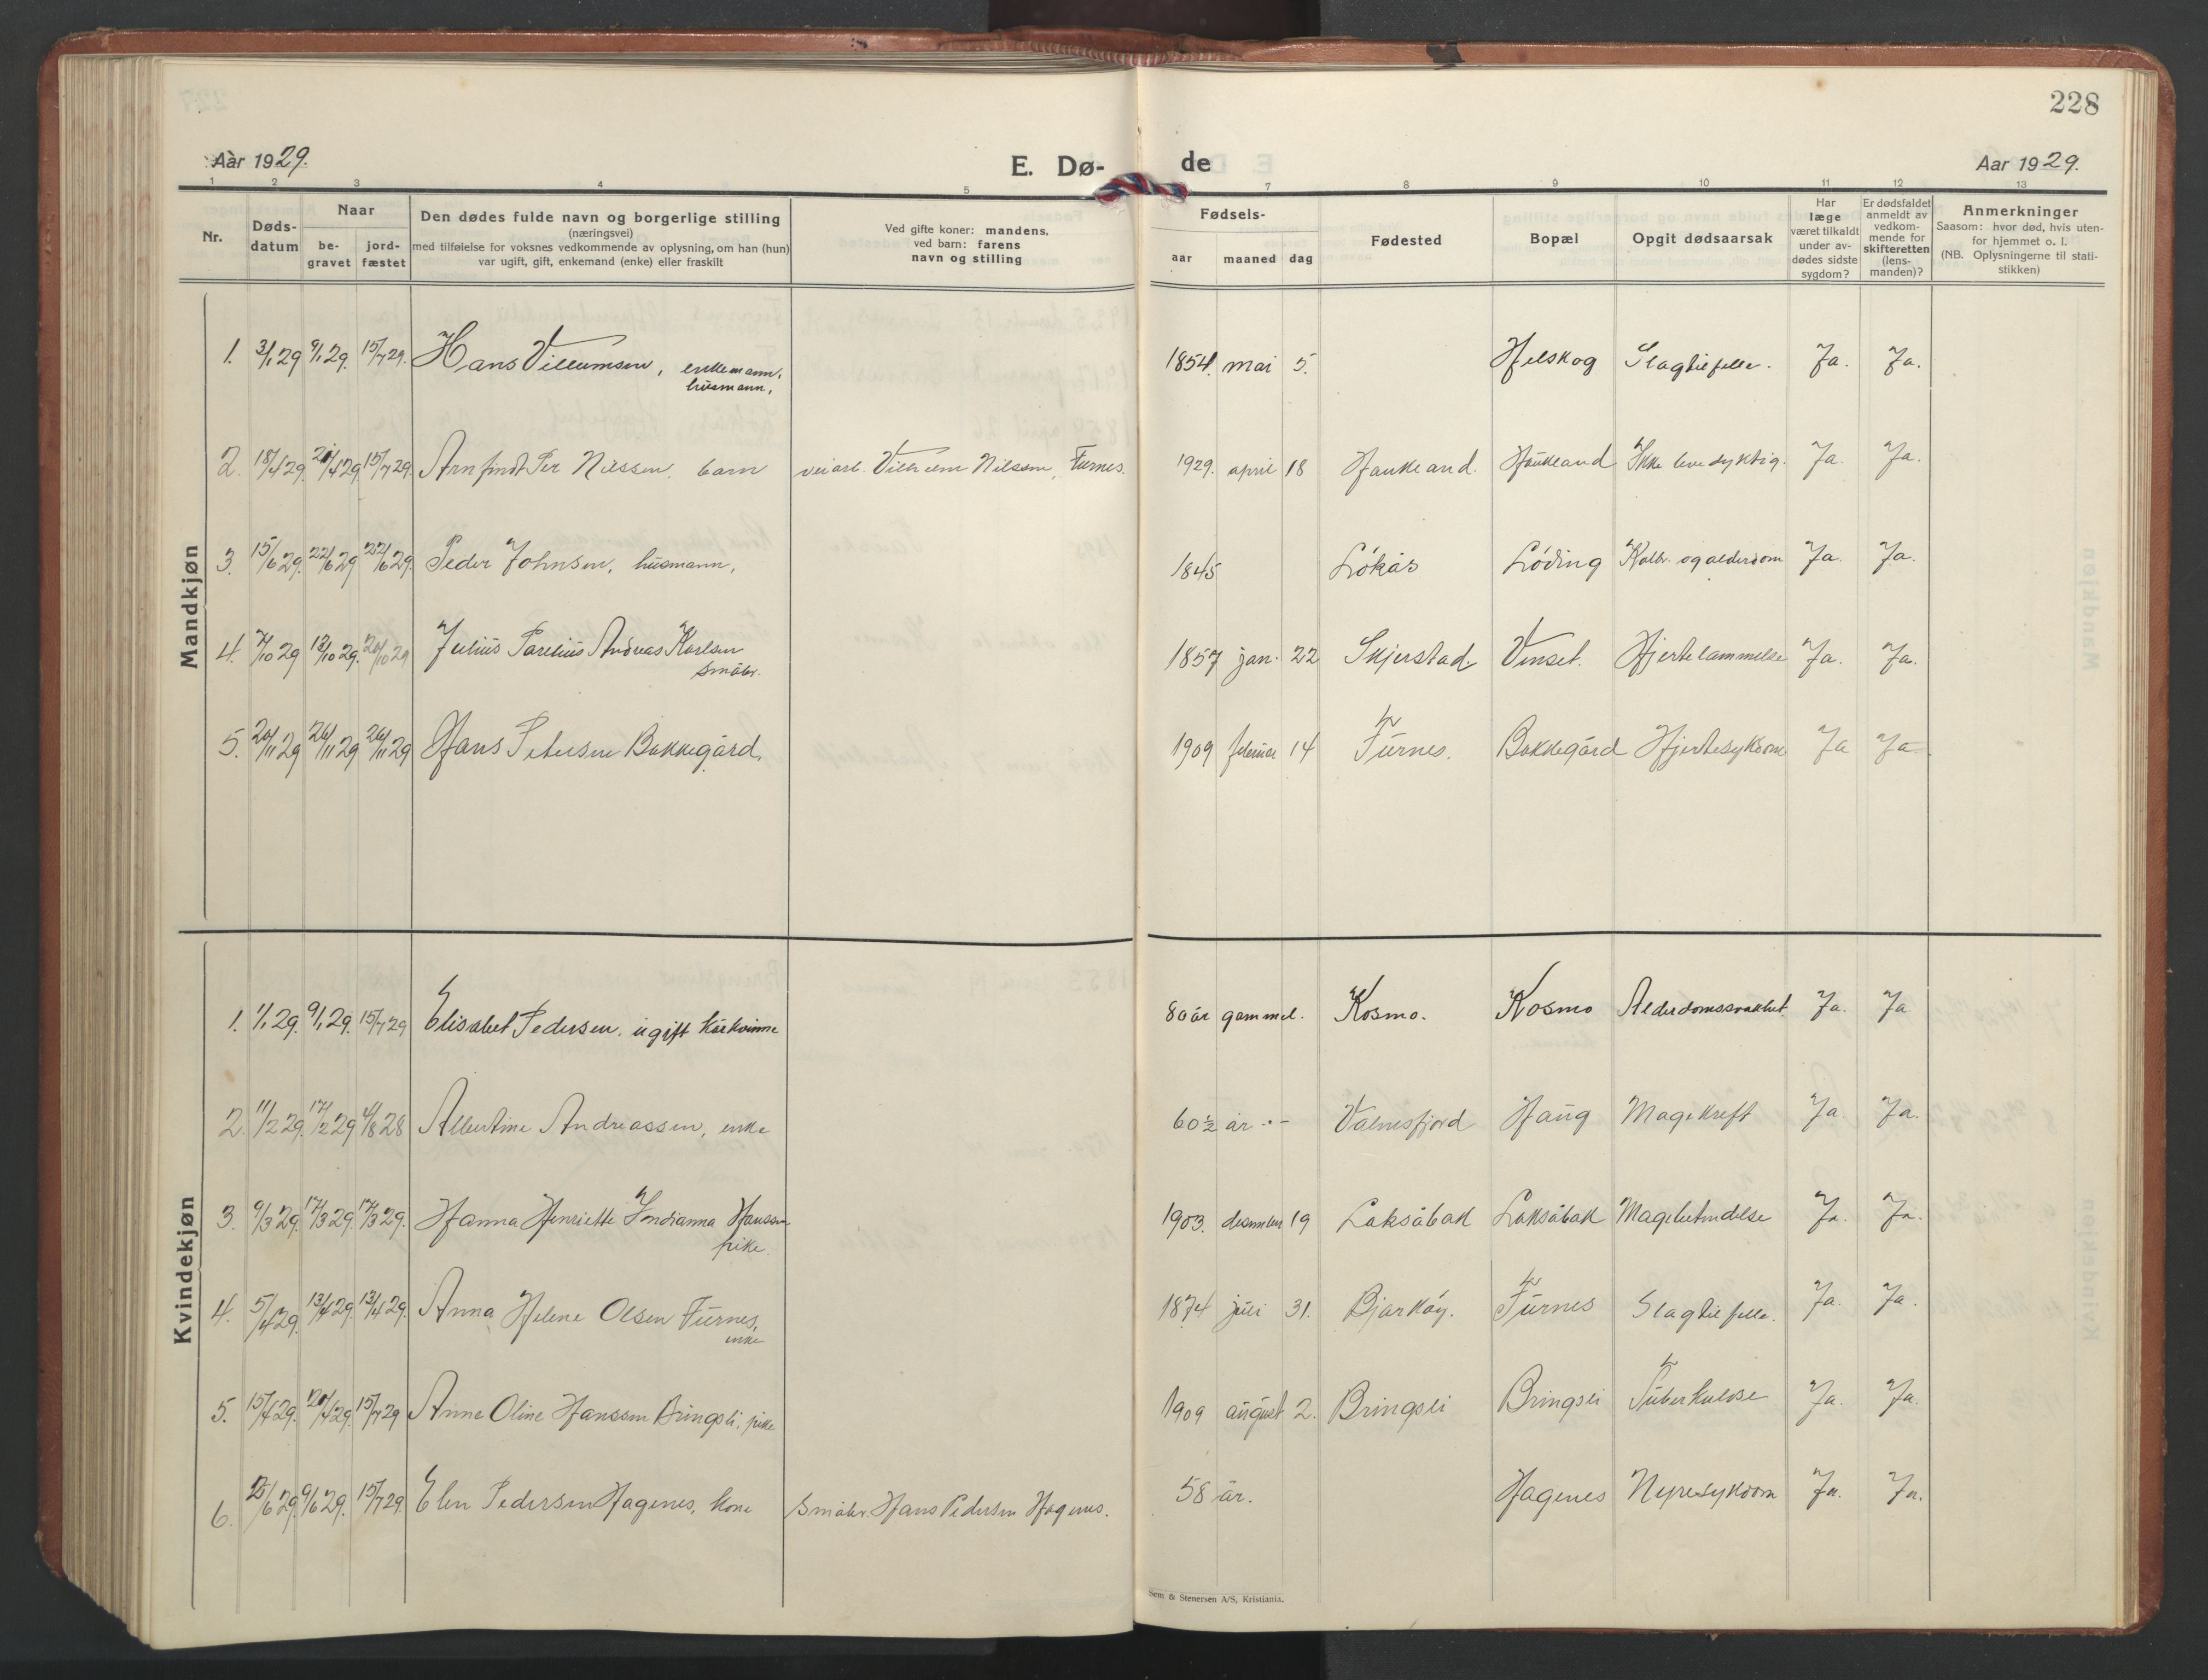 228
Aar 1929.
E. Dø-
de
Aar 1929.
1 2 3 4 5 7 8 9 10 11 12 13
Nr.
Døds-
datum
Naar
be-
gravet
jord-
fæstet
Den dødes fulde navn og borgerlige stilling
(næringsvei)
med tilføielse for voksnes vedkommende av oplysning, om han (hun)
var ugift, gift, enkemand (enke) eller fraskilt
Ved gifte koner: mandens,
ved barn: farens
navn og stilling
Fødsels-
aar maaned dag
Fødested
Bopæl
Opgit dødsaarsak
Har
læge
været tilkaldt
under av-
dødes sidste
sygdom?
Er dødsfaldet
anmeldt av
vedkom-
mende for
skifteretten
(lens-
manden)?
Anmerkninger
Saasom: hvor død, hvis uten-
for hjemmet o. l.
(NB. Oplysningerne til stati-
stikken)
Mandkjøn
1. 3/1 29 9/1 29. 15/7 29. Hans Villumsen, enkemann, 1854. mai 5. Helskog Slagtilfelle. Ja. Ja.
husmann,
2. 18/4 29. 20/4 29 15/7 29. Arnfindt Per Nilssen, barn veiarb. Vilhelm Nilsen, Furnes. 1929. april 18 Haukland. Haukland Ikke levedyktig. Ja. Ja.
3. 15/6 29. 22/6 29 22/6 29. Peder Johnsen, husmann, 1845 Løkås Løding Kolbr. og alderdom Ja. Ja.
4. 7/10 29 13/10 29. 20/10 29 Julius Parelius Andreas Karlsen 1857 jan. 22 Skjerstad. Vinset. Hjertelammelse Ja. Ja.
småbr.
5. 20/11 29 26/11 29 26/11 29 Hans Petersen Bakkegård. 1909 februar 14 Furnes. Bakkegård Hjertesykdom Ja Ja
Kvindekjøn
1. 1/1 29. 9/1 29. 15/7 29 Elisabet Pedersen, ugift kårkvinne 80 år gammel. Kosmo. Kosmo Alderdomssvakhet. Ja. Ja
2. 11/2 29. 17/2 29 4/8 28 Albertine Andreassen, enke 60½ år -"- Valnesfjord Haug Magekreft Ja. Ja.
3. 9/3 29. 17/3 29. 17/3 29. Hanna Henriette Indianna Hanssen 1903. desember 19 Laksåbak Laksåbak Magebetendelse Ja. Ja.
pike.
4. 5/4 29. 13/4 29. 13/4 29. Anna Helene Olsen Furnes, 1874 juli 31. Bjarkøy. Furnes Slagtilfelle. Ja. Ja.
enke
5. 15/4 29. 20/4 29. 15/7 29 Anne Oline Hanssen Bringsli, pike 1909 august 2. Bringsli Bringsli Tuberkulose Ja. Ja.
6. 29. 9/6 29. 15/7 29. Elen Pedersen Hagenes, kone Småbr. Hans Pedersen Hagenes. 58 år. Hagenes Nyresykdom Ja. Ja.
Sem & Stenersen A/S, Kristiania.